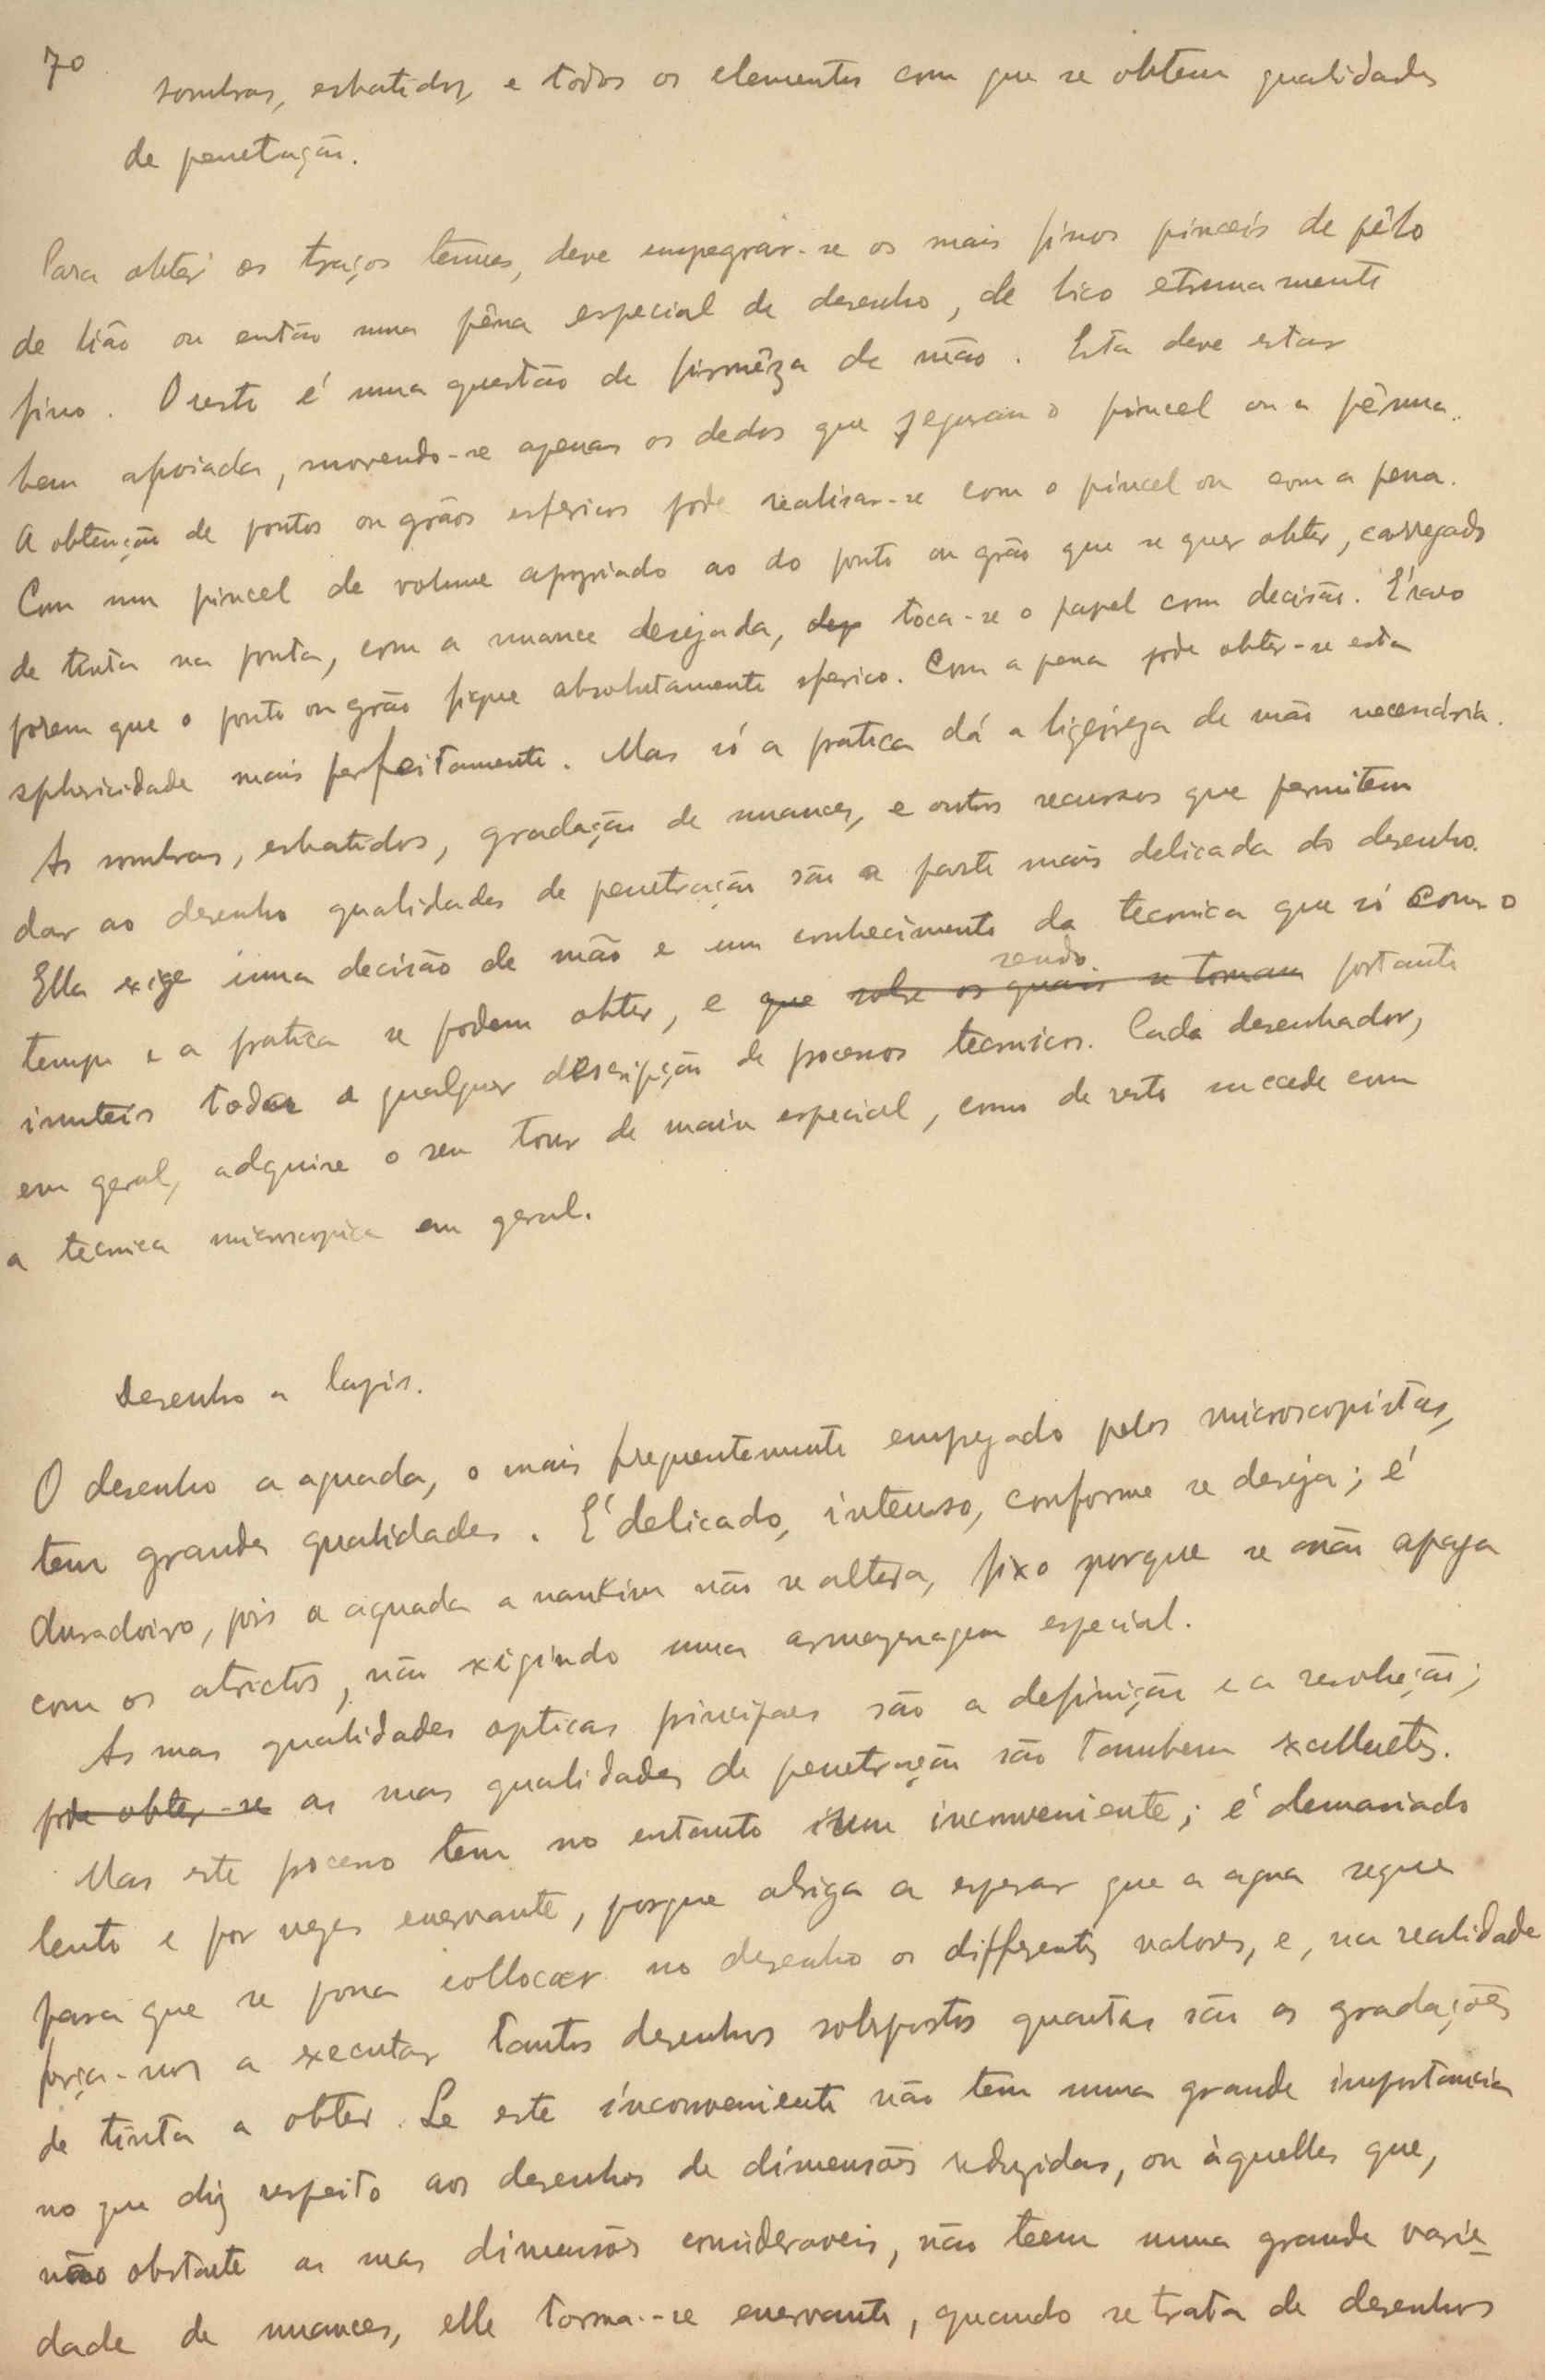 70
sombras, esbatidos, e todos os elementos com que se obtem qualidades
de penetração.
Para obter os traços tenues, deve empegrar-se os mais finos pinceis de pêlo
de lião ou então uma pêna especial de desenho, de bico etremamente
fino. O resto é uma questão de firmêza de mão. Esta deve estar
bem apoiada, movendo-se apenas os dedos que seguram o pincel ou a pênna.
A obtenção de pontos ou grãos esfericos pode realisar-se com o pincel ou com a pena.
Com um pincel de volume apropriado ao do ponto ou grão que se quer obter, carregado
de tinta na ponta, com a nuance desejada, dep toca-se o papel com decisão. É raro
porem que o ponto ou grão fique absolutamente sferico. Com a pena pode obter-se esta
sphericidade mais perfeitamente. Mas só a pratica dá a ligeireza de mão necessária.
As sombras, esbatidos, gradação de nuances, e outros recursos que permitem
dar ao desenho qualidades de penetração são a parte mais delicada do desenho.
Ella exige uma decisão de mão e um conhecimento da tecnica que só com o
tempo e a pratica se podem obter, e que sobre os quais se tornam sendo portanto
inuteis toda a qualquer descripção de processos tecnicos. Cada desenhador,
em geral, adquire o seu tour de main especial, como de resto succede com
a tecnica microscopica em geral.
Desenho a lapis.
O desenho a aguada, o mais frequentemente empregado pelos microscopistas,
tem grandes qualidades. É delicado, intenso, conforme se deseja; é
duradoiro, pois a aguada a nankim não se altera, fixo porque se não apaga
com os atrictos, não exigindo uma armazenagem especial.
As suas qualidades opticas principaes são a definição e a resolução;
pode obter-se as suas qualidades de penetração são tambem excellentes.
Mas este processo tem no entanto um inconveniente; é demasiado
lento e por vezes enervante, porque obriga a esperar que a agua seque
para que se possa collocar no desenho os differentes valores, e, na realidade
força-nos a executar tantos desenhos sobrepostos quantas são as gradações
de tinta a obter. Se este inconveniente não tem uma grande importancia
no que diz respeito aos desenhos de dimensões reduzidas, ou àquelles que,
não obstante as suas dimensões consideraveis, não teem uma grande varie-
dade de nuances, elle torna-se enervante, quando se trata de desenhos